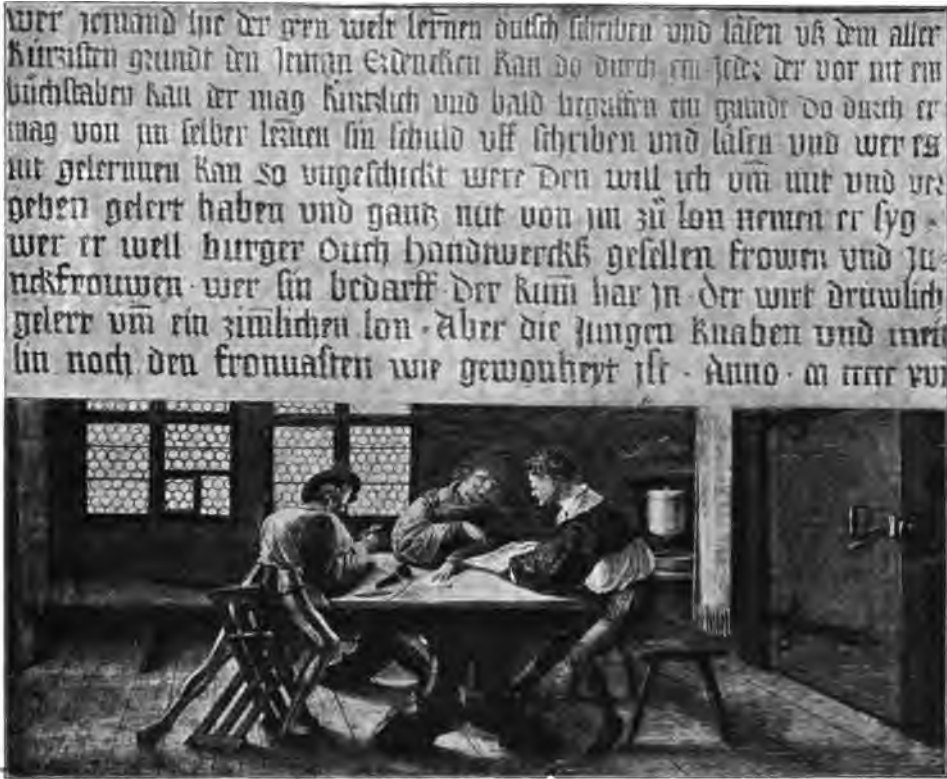 wer jemand hie der gern welt lernen dütsch schriben und läsen uß dem aller
kürzisten grundt den Jeman Erdencken kan do durch ein jeder der vor nit ein
büchstaben kan der mag kürtzlich und bald begriffen ein grundt do durch er
mag von jm selber lernen sin schuld uff schriben und läsen und wer es
nit gelernnen kan so ungeschickt were Den will ich um̄ nüt und ver
geben gelert haben und gantz nüt von jm zů lon nemen er syg
wer er well burger Ouch handtwercks gesellen frowen und ju
nckfrouwen wer sin bedarff Der kum̄ har jn der wirt drüwlich
gelert um̄ ein zimlichen lon · Aber die jungen knaben und meit
lin noch den fronuasten wie gewonheyt ist · Anno · m ccccc xvi